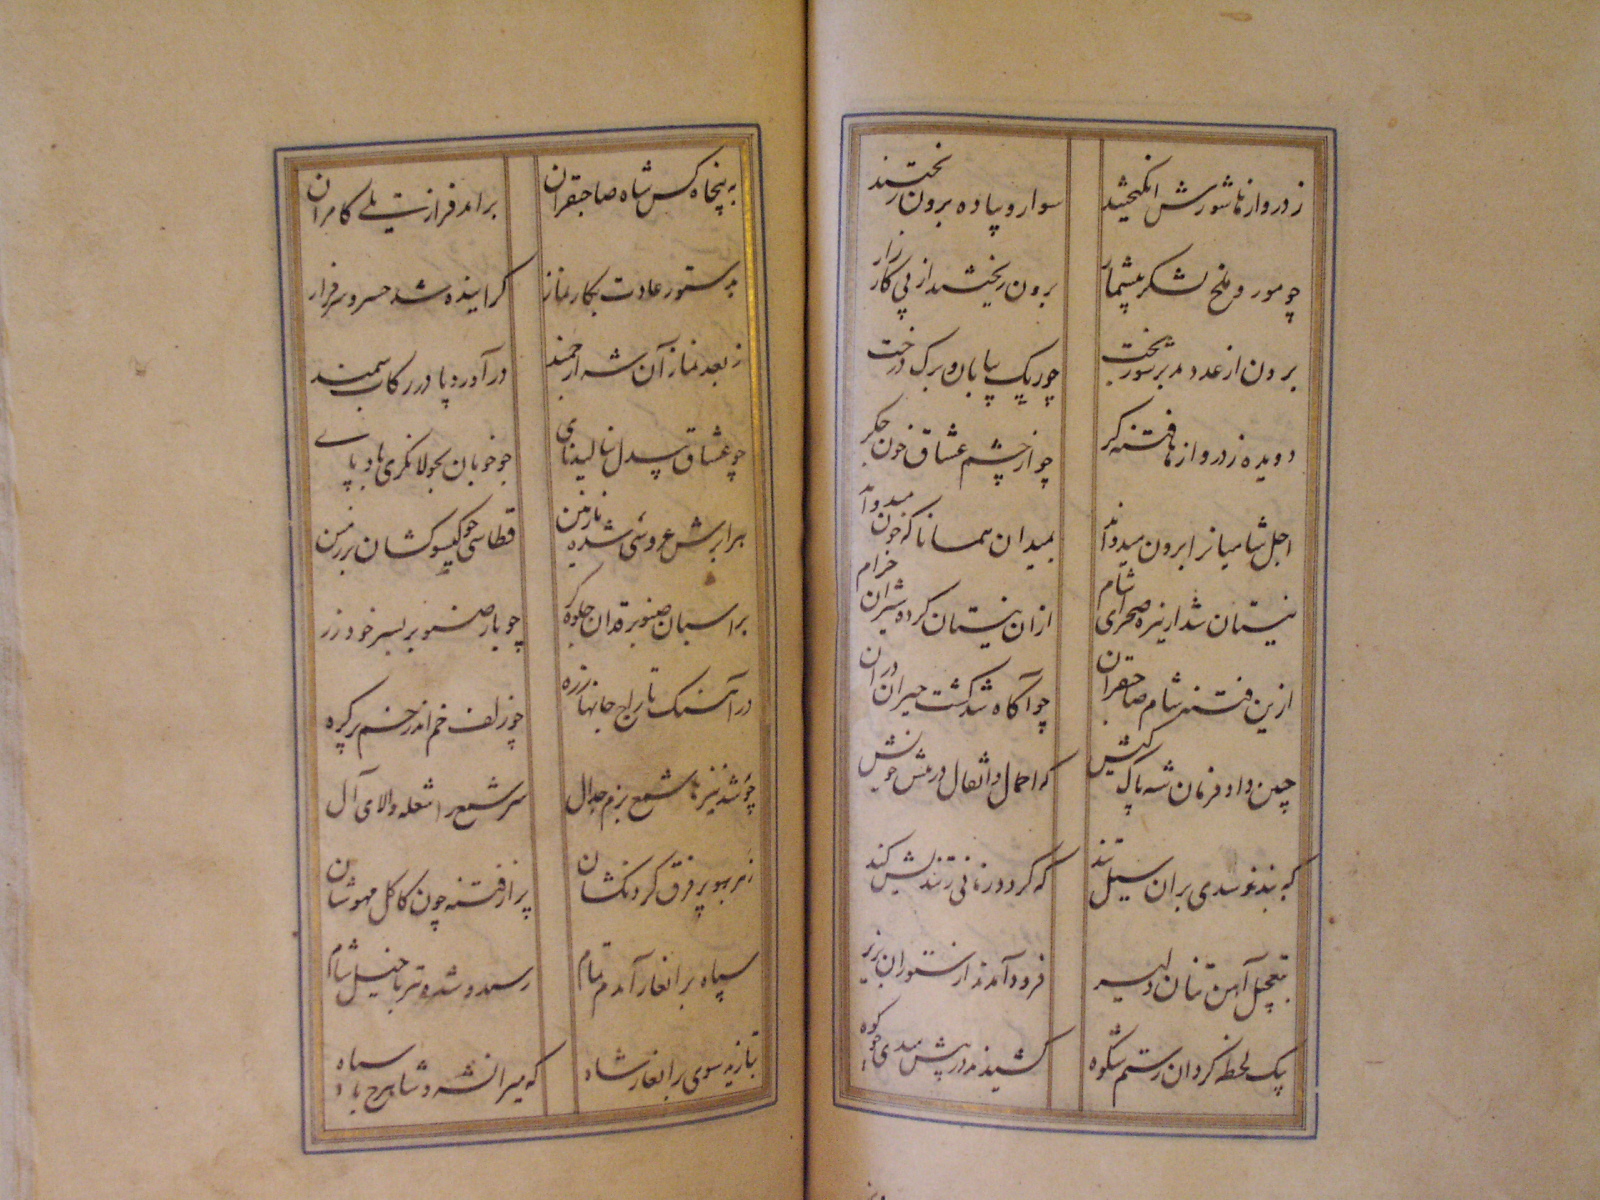 ز دروازها شورش انگیختند سوار و پیاده برون ریختند
چو مور و ملخ لشکر بیشمار برون ریختند از پی کارزار
برون از عدد مدبر شوربخت چو ریک بیابان و برک درخت
دویده ز دروازها فتنه کر چو از چشم عشاق خون جکر
اجل شامیانرا برون میدواند بمیدان همانا که خون میدواند
نیستان شد از نیزه صحرای شام ازان نیستان کرده شیران خرام
ازین فتنه شام صاحبقران چو آکاه شد کشت حیران دران
چنین داد فرمان شه پاک کیش که احمال و اثقال در پیش خویش
که بندند سدی بران سیل تند که کردد زمانی ز تندیش کند
بتعجیل آهن تنان دلیر فرود آمدند از ستوران بزیر
بیک لحظه کردان رستم شکوه کشیدند در پیش سدی چو کوه
به پنجاه کس شاه صاحبقران برآمد فراز تلی کامران
بدستور عادت بکار نماز کراینده شد خسرو سرفراز
ز بعد نماز آن شه ارجمند درآورد پا در رکاب سمند
چو عشاق بیدل بنالید نای چو خوبان بجولانکری بادپای
برابرش عروسی شده نازنین قطاسی چو کیسو کشان بر زمین
بر اسبان صنوبر قدان جلوه کر چو بار صنوبر بسر خود زر
در آهنک تاراج جانها زره چو زلف خم اندر خم پر کره
چو شد نیزها شمع بزم جدال سر شمع را شعله والای آل
فرق کردنکشان پر از فتنه چون کاکل مهوشان
سپاه برانغار آمد تمام رسیده شده تیر با خیل شام
بتازید سوی برانغار شاه که میرانشه و شاهرخ با سپاه